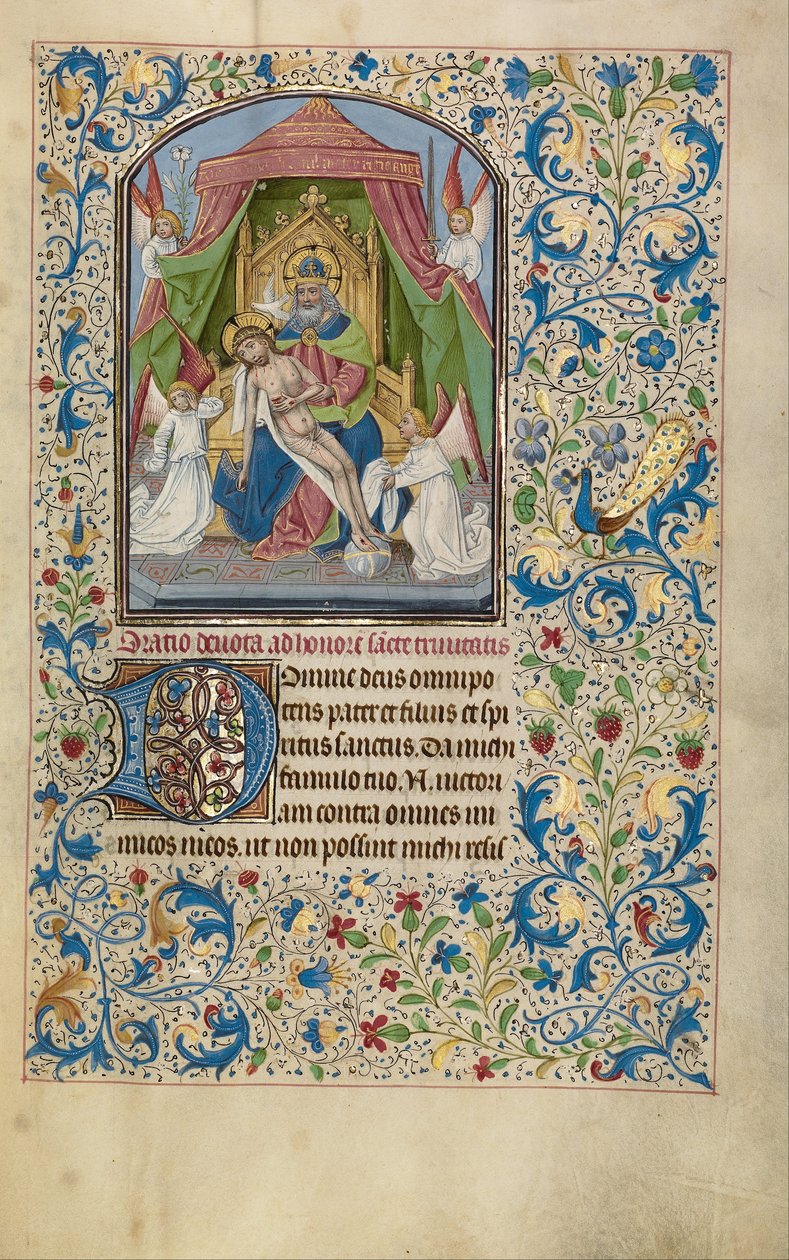 Oratio deuota ad honorē sāc̄te trinitatis
Domine deus omnipo
tens pater et filius et spi
ritus sanctus. Da michi
famulo tuo .N. uictori
am contra omnes ini
micos meos. ut non possint michi resis